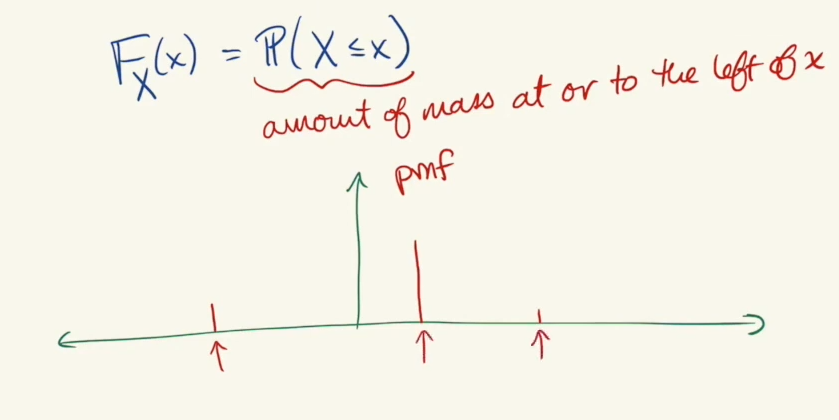 F_X(x) = ℙ(X ≤ x)
amount of mass at or to the left of x
pmf